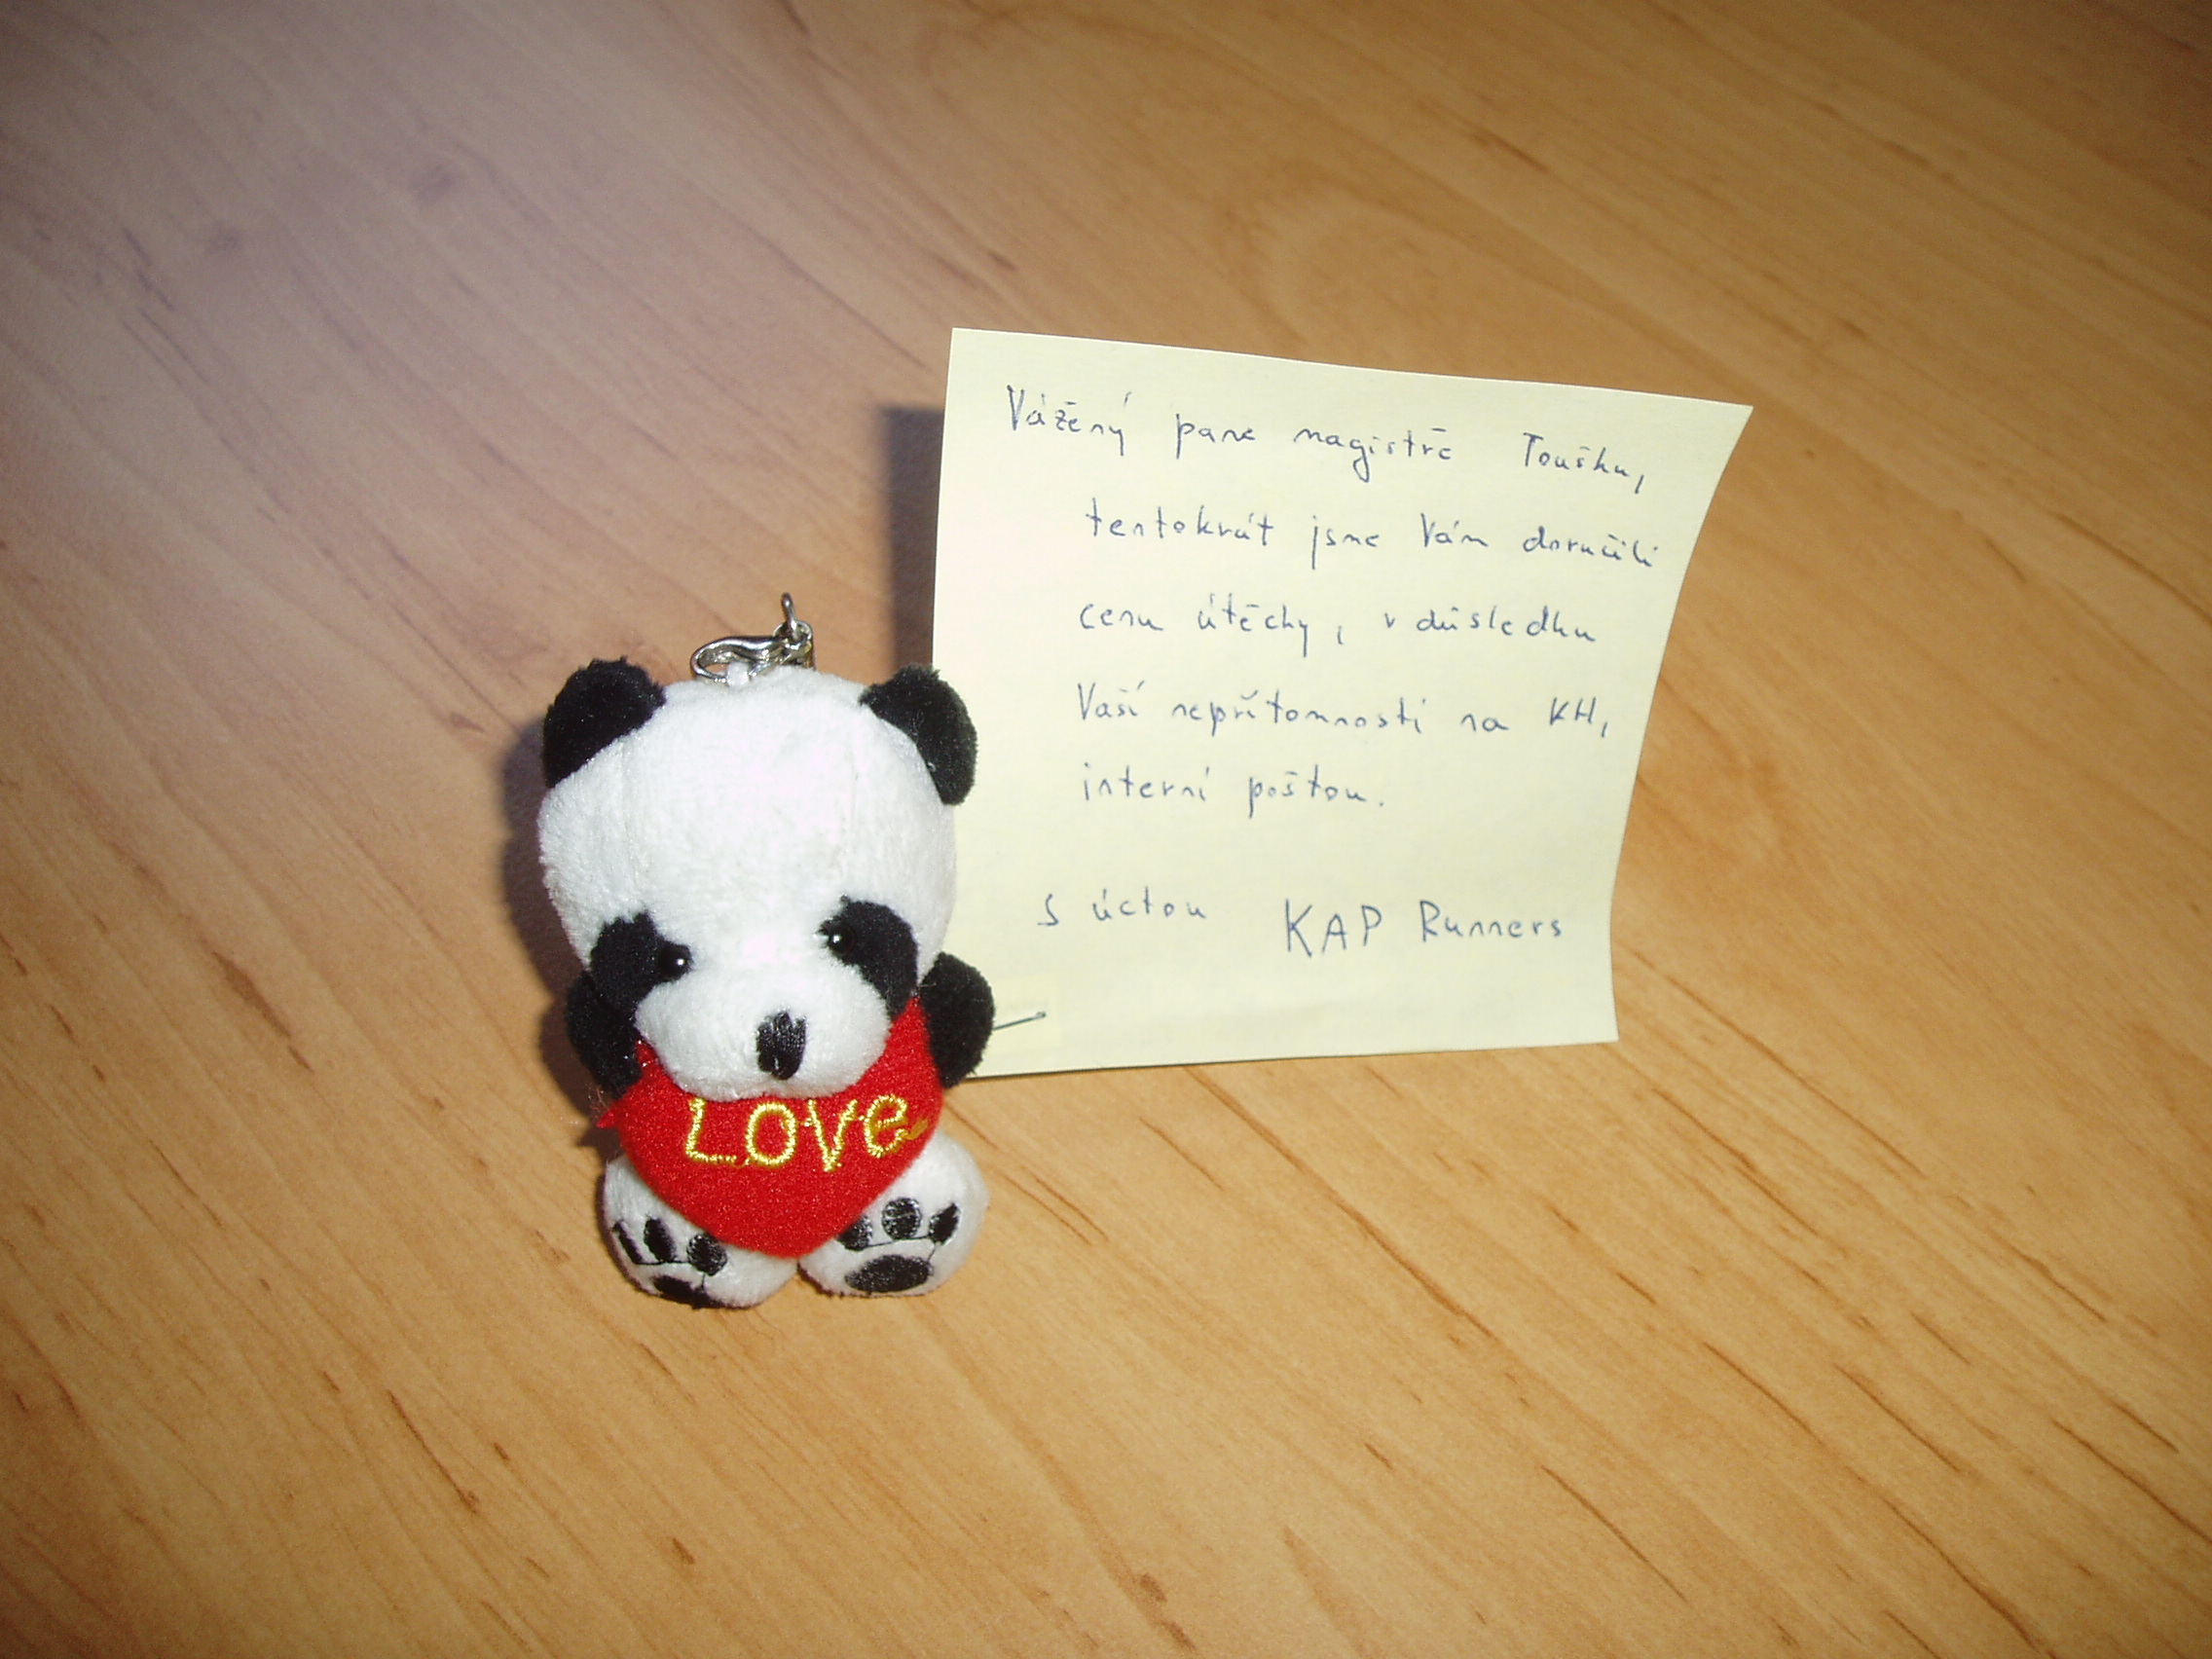 Vážený pane magistře Toušku,
tentokrát jsme Vám doručili
cenu útěchy, v důsledku
Vaší nepřítomnosti na KH,
interní poštou.
S úctou KAP Runners
LOVe